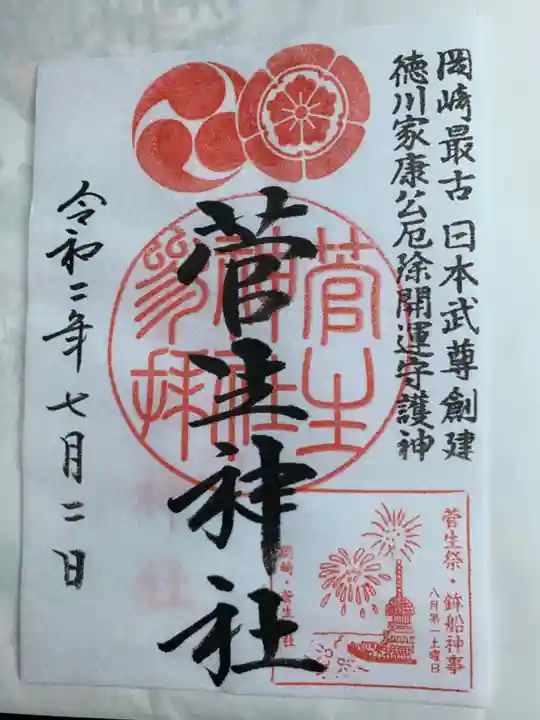 岡崎最古 日本武尊創建
徳川家康公厄除開運守護神
菅生神社
菅生神社参拝
令和二年七月二日
菅生祭・鉾船神事
八月第一土曜日
岡崎・菅生神社